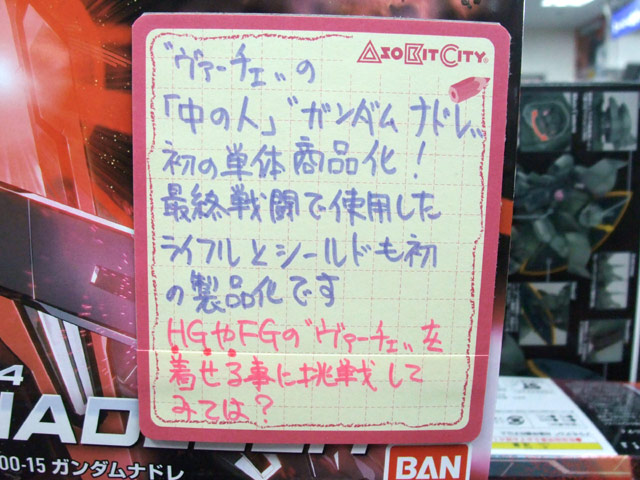 AsoBitCity
"ヴァーチェ"の
「中の人」"ガンダムナドレ"
初の単体商品化!
最終戦闘で使用した
ライフルとシールドも初
の製品化です
HGやFGの"ヴァーチェ"を
着せる事に挑戦して
みては?
00-15 ガンダムナドレ
BAN